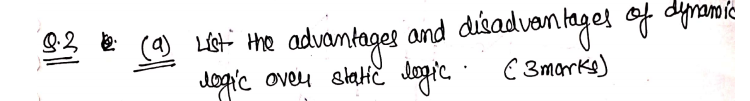 Q.2 (a) List the advantages and disadvantages of dynamic
logic over static logic. (3marks)